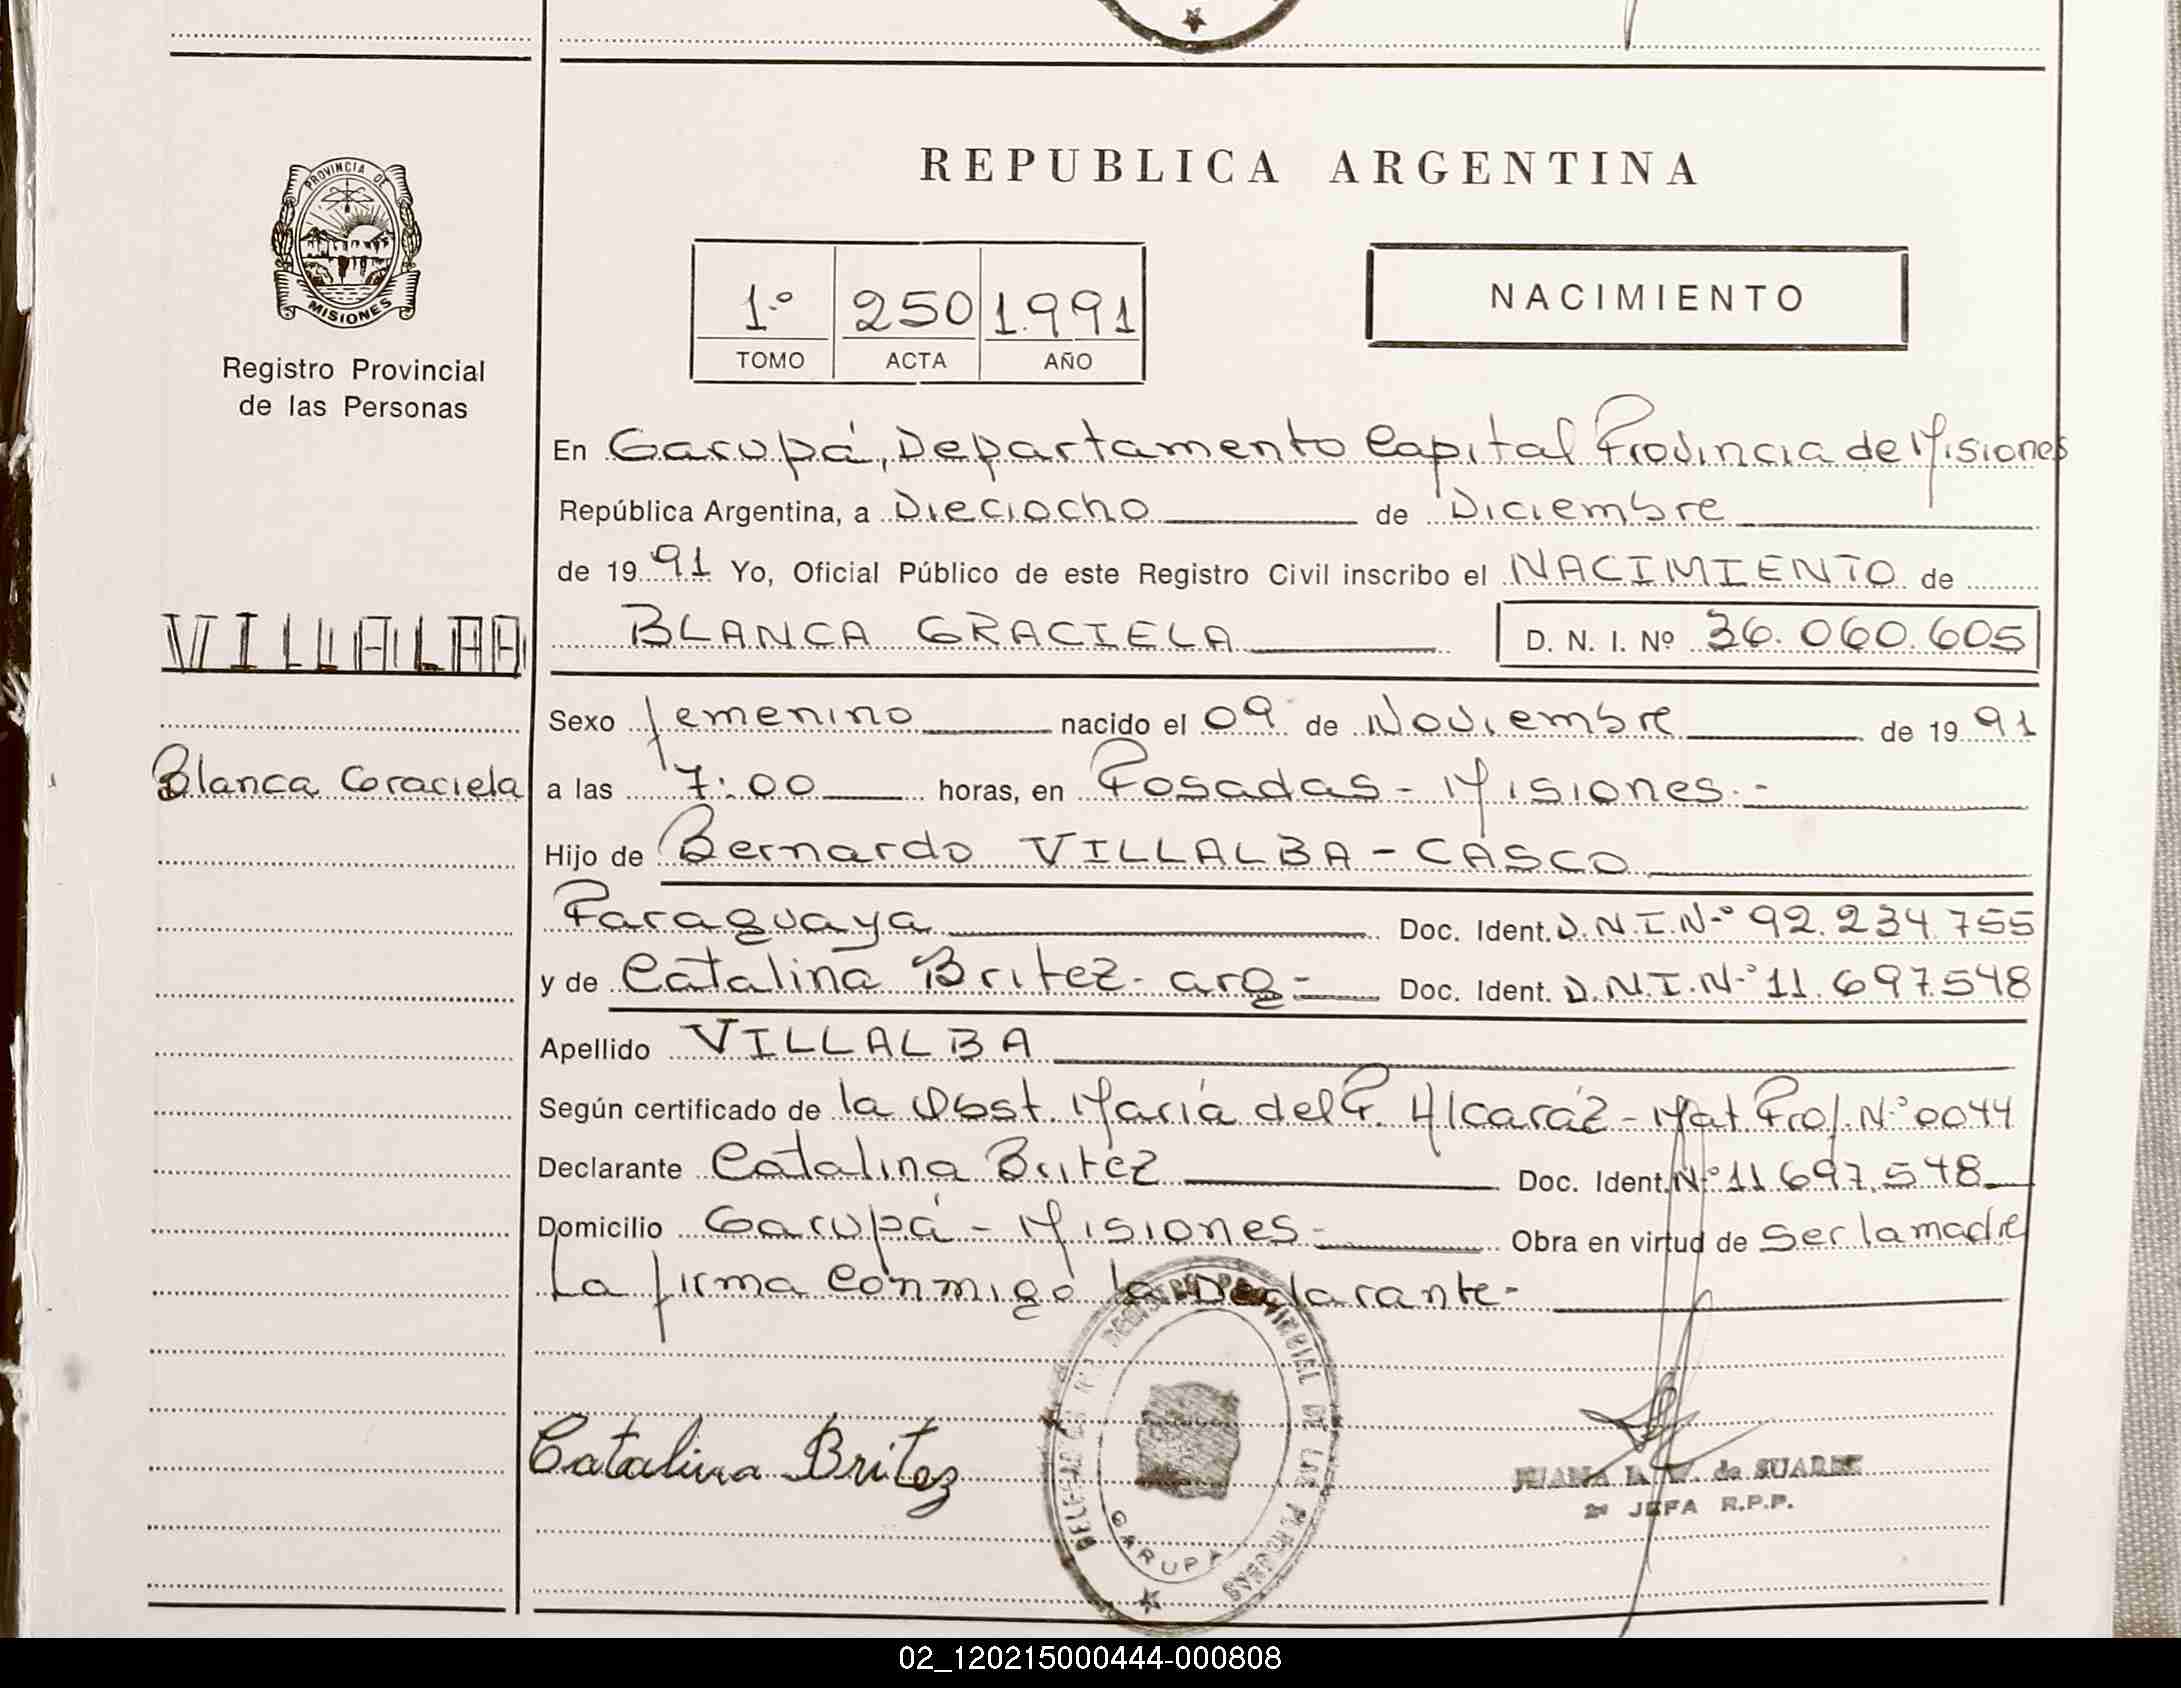 PROVINCIA DE
MISIONES
Registro Provincial
de las Personas
REPUBLICA ARGENTINA
1º 250 1.991
TOMO ACTA AÑO
NACIMIENTO
En Garupá, Departamento Capital Provincia de Misiones
República Argentina, a Dieciocho de Diciembre
de 1991 Yo, Oficial Público de este Registro Civil inscribo el NACIMIENTO de
VILLALBA
BLANCA GRACIELA D. N. I. Nº 36.060.605
Sexo femenino nacido el 09 de Noviembre de 1991
Blanca Graciela
a las 7:00 horas, en Posadas - Misiones.-
Hijo de Bernardo VILLALBA - CASCO
Paraguaya Doc. Ident. D.N.I.Nº 92.234.755
y de Catalina Britez - arg - Doc. Ident. D.N.I.Nº 11.697.548
Apellido VILLALBA
Según certificado de la Obst. María del P. Alcaráz - Mat Prof. Nº 0044
Declarante Catalina Britez Doc. Ident. Nº 11.697.548
Domicilio Garupá - Misiones - Obra en virtud de Ser la madre
La firma conmigo la Declarante -
Catalina Britez
DE LAS PERSONAS
GARUPA
JUANA de SUAREZ
JEFA R.P.P.
02_120215000444-000808